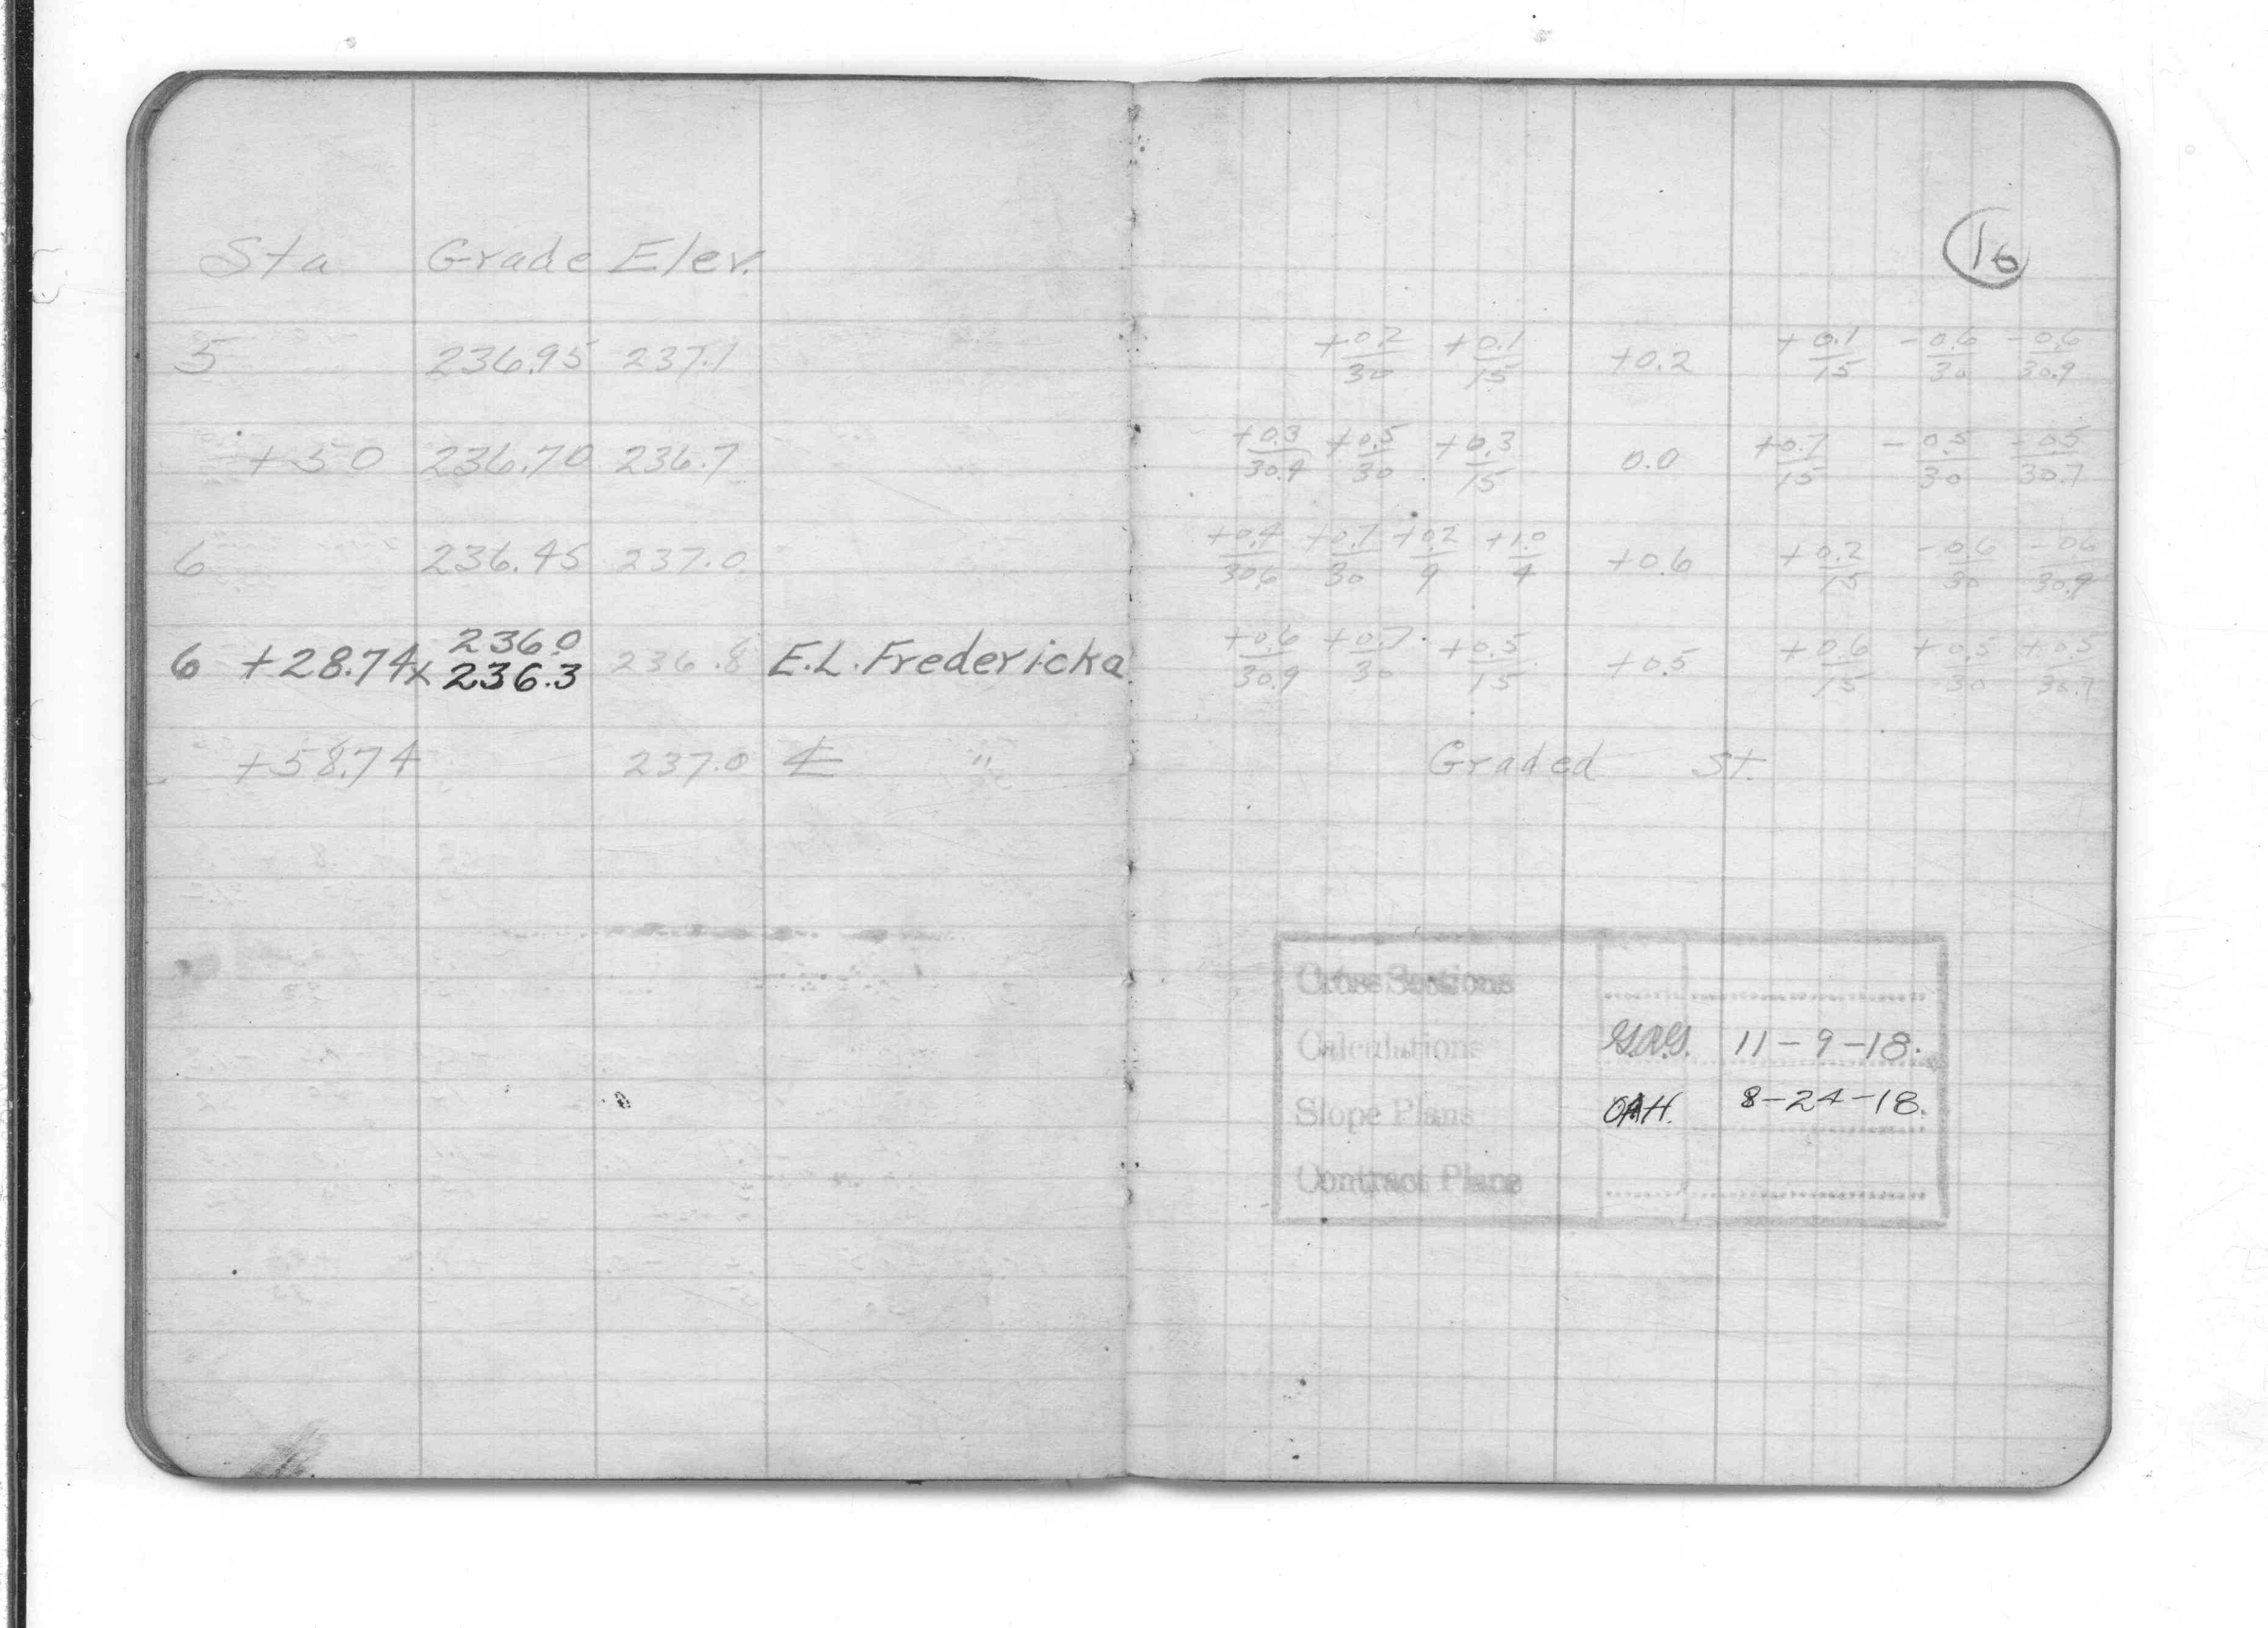 Sta Grade Elev.
16
5 236.95 237.1 +0.2/30 +0.1/15 +0.2 +0.1/15 -0.6/30 -0.6/30.9
+50 236.70 236.7 +0.3/30.9 +0.5/30 +0.3/15 0.0 +0.7/15 -0.5/30 -0.5/30.7
6 236.45 237.0 +0.4/30.6 +0.7/30 +0.2/9 +1.0/4 +0.6 +0.2/15 -0.6/30 -0.6/30.9
236.0
6 +28.74 x 236.3 236.8 E.L. Fredericka +0.6/30.9 +0.7/30 +0.5/15 +0.5 +0.6/15 +0.5/30 +0.5/30.7
+58.74 237.0 " Graded St.
Cross Sections
Calculations 11-9-18.
Slope Plans OAH. 8-24-18.
Contract Plans